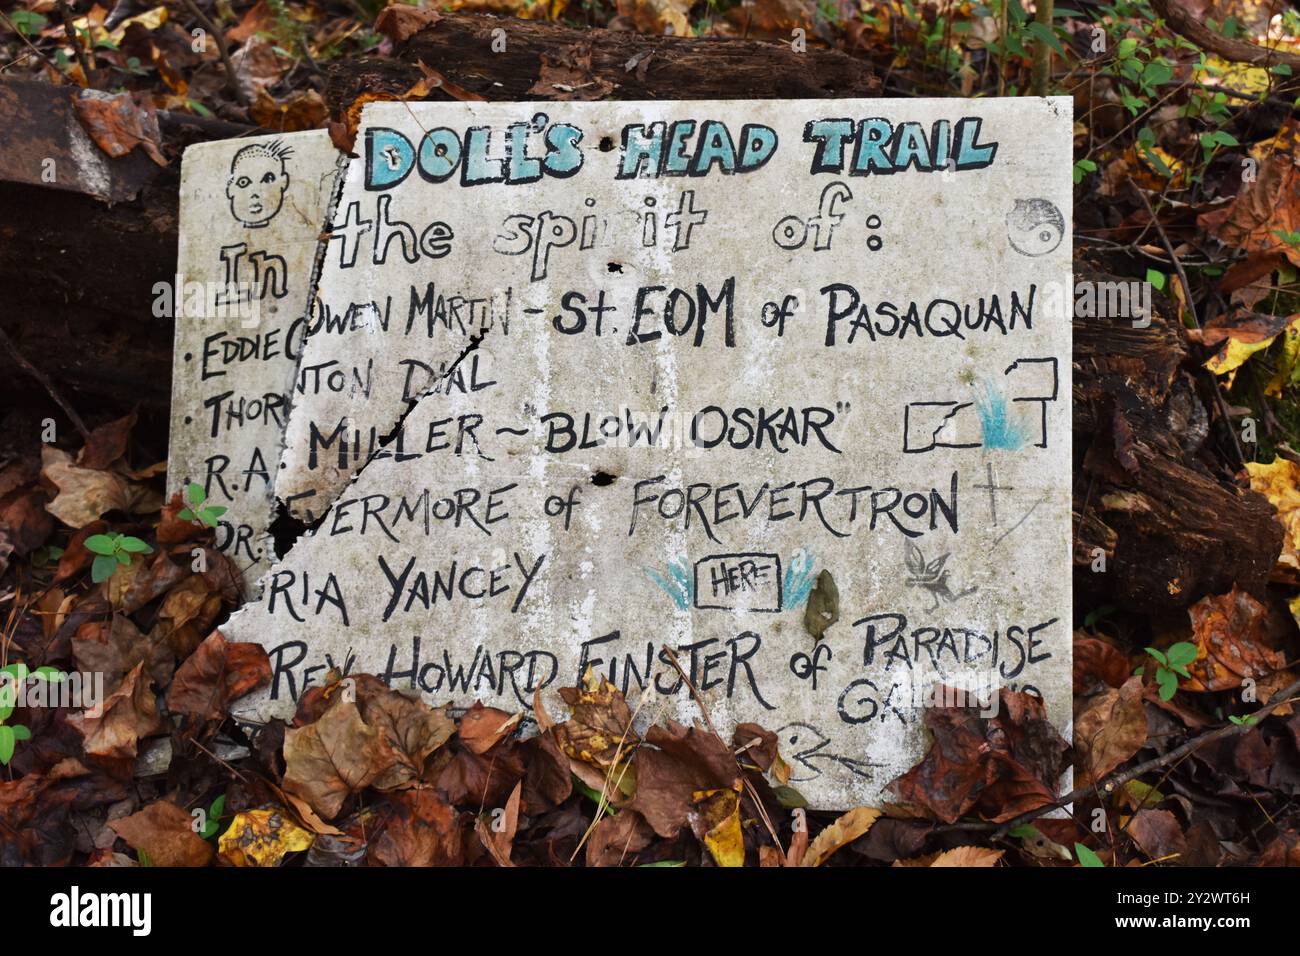 DOLL'S HEAD TRAIL
In the spirit of:
• EDDIE OWEN MARTIN ~ St. EOM of PASAQUAN
• THORNTON DIAL
• R.A. MILLER ~ "BLOW OSKAR"
• DR. EVERMORE of FOREVERTRON
RIA YANCEY
HERE
REV. HOWARD FINSTER of PARADISE
alamy
Image ID: 2Y2WT6H
www.alamy.com